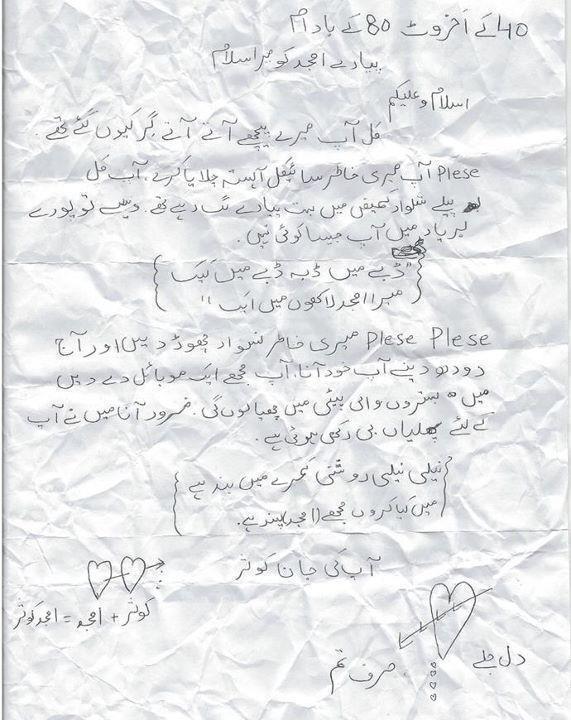 40 کے اخروٹ 80 کے بادام
پیارے امجد کو میرا سلام
اسلام و علیکم
کل آپ میرے پیچھے آتے آتے گر کیوں گئے تھے۔
Plese آپ میری خاطر سائیکل آہستہ چلایا کرے، آپ کل
پیلے شلوار قمیض میں بہت پیارے لگ رہے تھے۔ ویسے تو پورے
میں آپ جیسا کوئی نہیں۔
"ڈبے میں ڈبہ ڈبے میں کیک
میرا امجد لاکھوں میں ایک"
Plese Plese میری خاطر نسوار چھوڑ دیں اور آج
دودھ دینے آپ خود آنا، آپ مجھے ایک موبائل دے دیں
میں بستروں والی پیٹی میں چھپا لوں گی۔ ضرور آنا میں نے آپ
کے لئے پھلیاں بی رکھی ہوئی ہے۔
نیلی نیلی روشنی کمرے میں بند ہے
میں کیا کروں مجھے (امجد) پسند ہے۔
آپ کی جان کوثر
کوثر + امجد = امجد کوثر
دل جلے
صرف تم